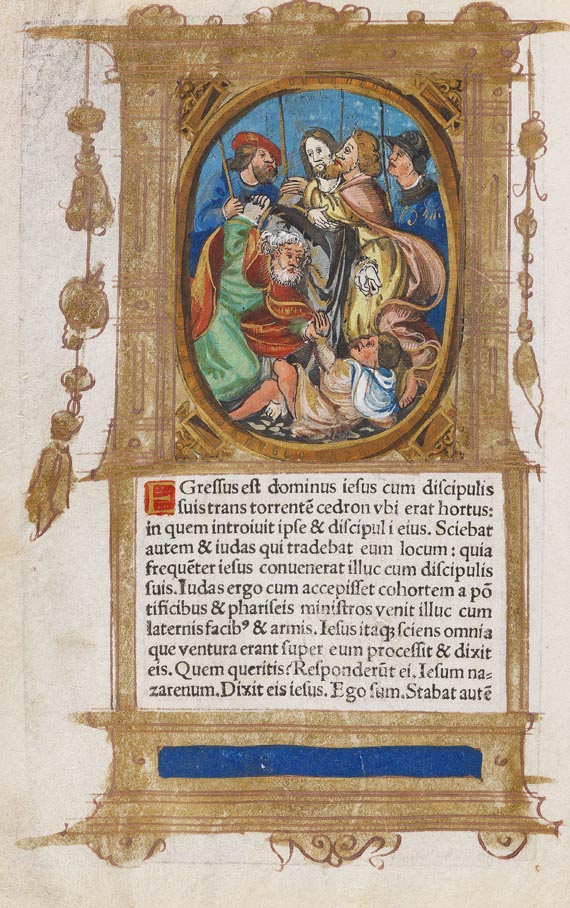 EGressus est dominus iesus cum discipulis
suis trans torrentē cedron vbi erat hortus:
in quem introiuit ipse & discipul i eius. Sciebat
autem & iudas qui tradebat eum locum: quia
frequēter iesus conuenerat illuc cum discipulis
suis. Iudas ergo cum accepisset cohortem a pō
tificibus & phariseis ministros venit illuc cum
laternis facibꝰ & armis. Iesus itaqꝫ sciens omnia
que ventura erant super eum processit & dixit
eis. Quem queritis? Responderūt ei. Iesum na⸗
zarenum. Dixit eis iesus. Ego sum. Stabat autē